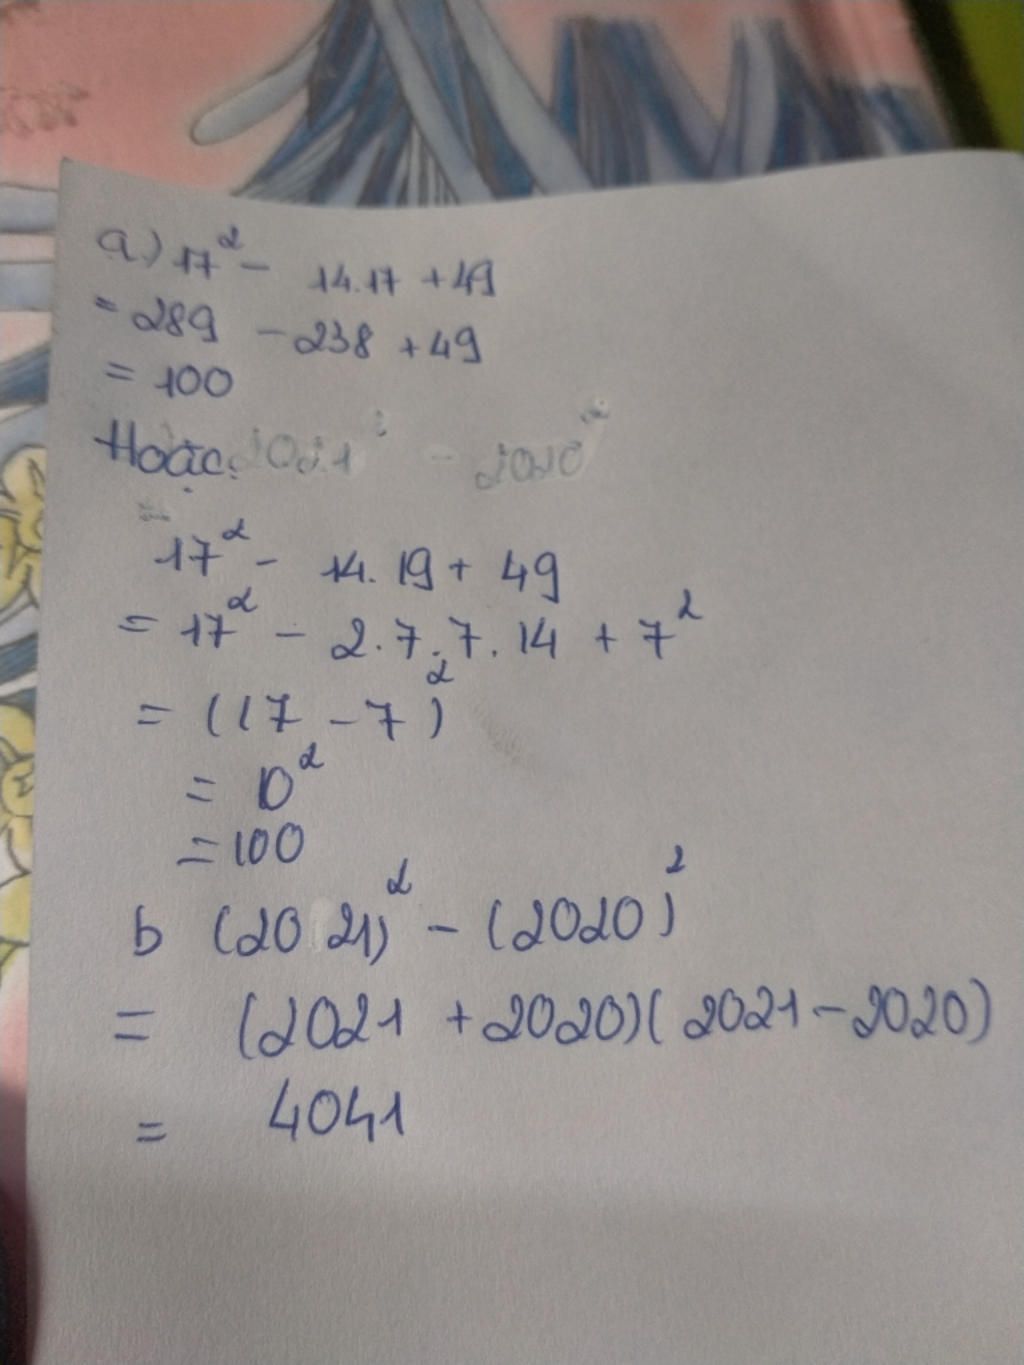 a.) 17² - 14.17 + 49
= 289 - 238 + 49
= 100
Hoặc: 2021² - 2020²
=
17² - 14. 19 + 49
= 17² - 2.7.7.14 + 7²
= (17 - 7)²
= 10²
= 100
b (2021)² - (2020)²
= (2021 + 2020)(2021 - 2020)
= 4041